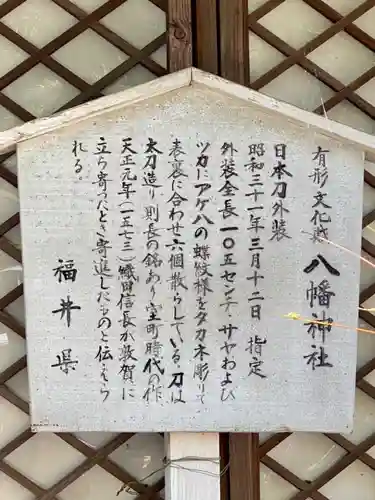 有形文化財 八幡神社
日本刀外装
昭和三十一年三月十二日 指定
外装全長一〇五センチ、サヤおよび
ツカにアゲハの蝶紋様をタカ木彫りで
表裏に合わせ六個散らしている。刀は
太刀造り則長の銘あり、室町時代の作
天正元年(一五七三)織田信長が敦賀に
立ち寄ったとき寄進したものと伝えら
れる。
福井県